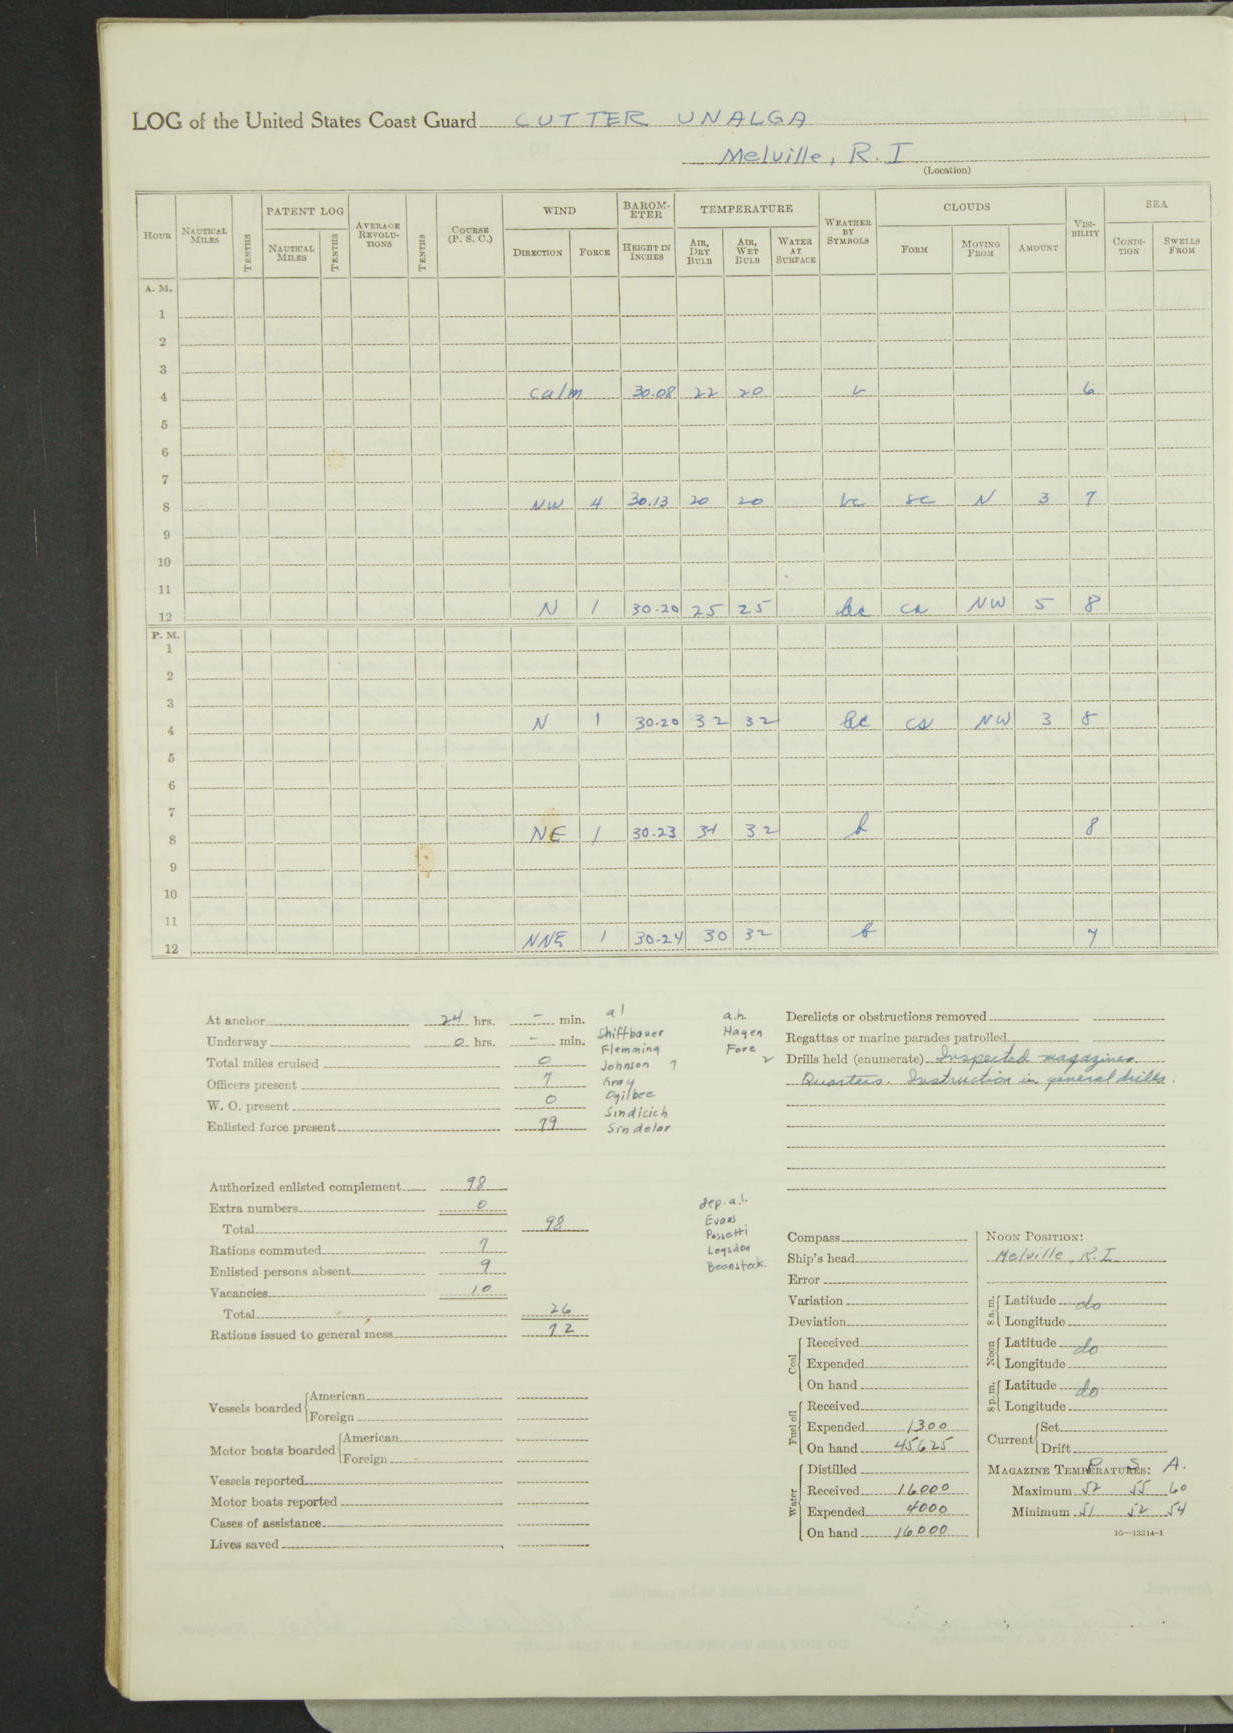 LOG of the United States Coast Guard CUTTER UNALGA
Melville, R.I
(Location)
HOUR NAUTICAL MILES TENTHS PATENT LOG NAUTICAL MILES TENTHS AVERAGE REVOLU-TIONS TENTHS COURSE (P. S. C.) WIND DIRECTION FORCE BAROM-ETER HEIGHT IN INCHES TEMPERATURE AIR, DRY BULB AIR, WET BULB WATER AT SURFACE WEATHER BY SYMBOLS CLOUDS FORM MOVING FROM AMOUNT VISI-BILITY SEA CONDI-TION SWELLS FROM
A. M.
1
2
3
4 calm 30.08 22 20 b 6
5
6
7
8 NW 4 30.13 20 20 bc sc N 3 7
9
10
11
12 N 1 30-20 25 25 bc NW 5 8
P. M.
1
2
3
4 N 1 30-20 32 32 bc NW 3 8
5
6
7
8 NE 1 30-23 32 b 8
9
10
11
12 NNE 1 30-24 30 32 b 7
At anchor 24 hrs. - min.
Underway 0 hrs. - min.
Total miles cruised 0
Officers present 7
W. O. present 0
Enlisted force present 79
a l
Shiffbauer
Flemming
Johnson 7
Gray
Ogilbee
Sindicich
Sindelar
a.h.
Hagen
Fore
2
Derelicts or obstructions removed
Regattas or marine parades patrolled
Drills held (enumerate) Inspected magazines.
Quarters. Instruction in general drills.
Authorized enlisted complement 98
Extra numbers 0
Total 98
Rations commuted 7
Enlisted persons absent 9
Vacancies 10
Total 26
Rations issued to general mess 72
dep. a.l.
Evans
Possetti
Logsdon
Vessels boarded American
Foreign
Motor boats boarded American
Foreign
Vessels reported
Motor boats reported
Cases of assistance
Lives saved
Compass
Ship's head
Error
Variation
Deviation
Coal Received
Expended
On hand
Fuel oil Received
Expended 1300
On hand 45625
Water Distilled
Received 16000
Expended 4000
On hand 16000
NOON POSITION:
Melville, R.I
8 a.m. Latitude do
Longitude
Noon Latitude do
Longitude
8 p.m. Latitude do
Longitude
Current Set
Drift
MAGAZINE TEMPERATURES: P S A.
Maximum 52 55 60
Minimum 51 52 54
16—13214-1